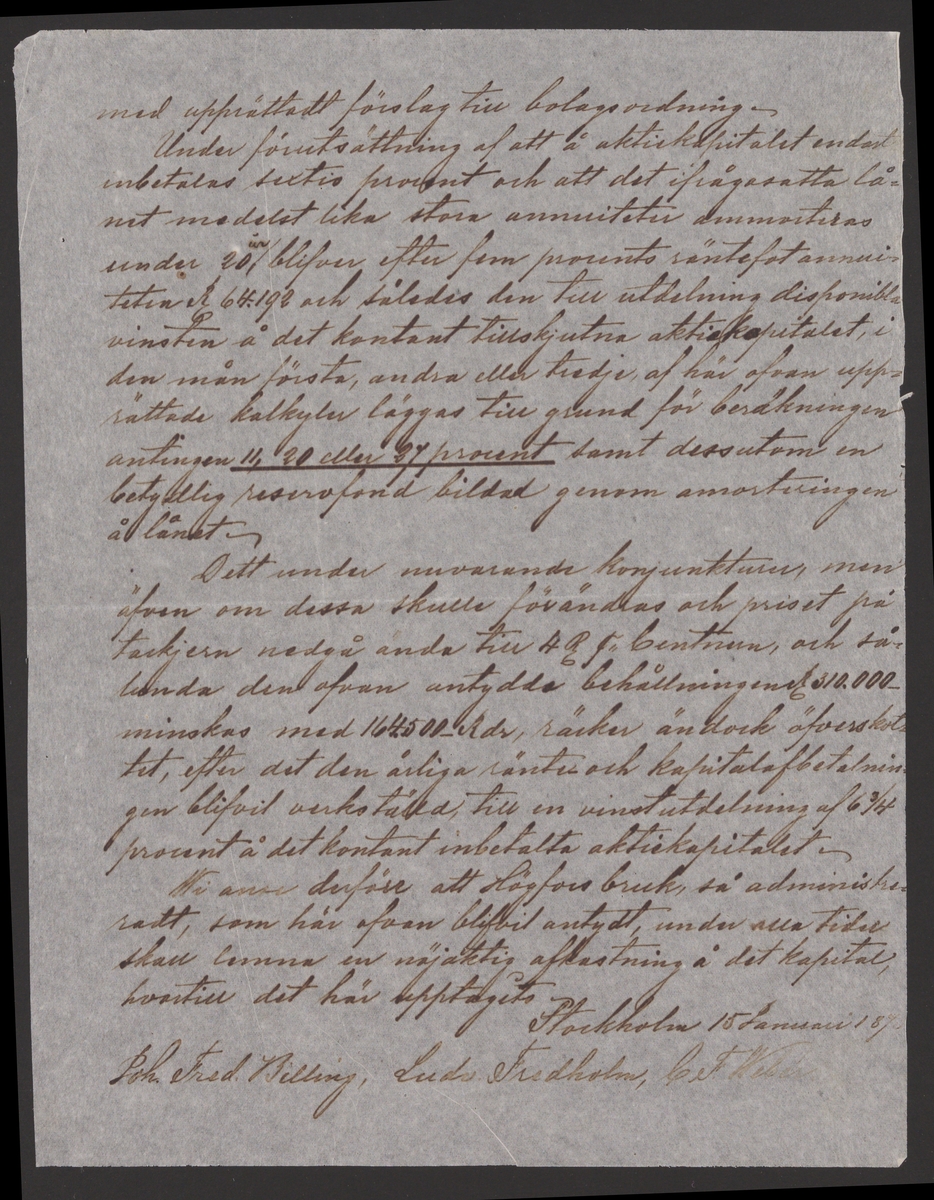 med upprättadt förslag till bolagsordning.
Under förutsättning af att å aktiekapitalet endast
inbetalas sextio procent och att det ifrågasatta lå=
net medelst lika stora annuiteter ammorteras
under 20 år blifver efter fem procents räntefot annui=
teten R 64.192 och således den till utdelning disponibla
vinsten å det kontant tillskjutna aktiekapitalet, i
den mån första, andra eller tredje, af här ofvan upp=
rättade kalkyler läggas till grund för beräkningen
antingen 11, 20 eller 27 procent samt dessutom en
betydlig reservfond bildad genom amorteringen
å lånet.
Dett under nuvarande konjunkturer, men
äfven om dessa skulle förändras och priset på
tackjern nedgå ända till 4 R pr Centner, och så=
lunda den ofvan antydda behållningen R 310.000
minskas med 164500 Rdr, räcker ändock öfverskot=
tet, efter det den årliga ränte och kapitalafbetalnin=
gen blifvit verkstäld, till en vinstutdelning af 6 3/4
procent å det kontant inbetalta aktiekapitalet.
Wi anse derföre att Högfors bruk, så administre=
radt, som här ofvan blifvit antydt, under alla tider
skall lemna en nöjaktig afkastning å det kapital,
hvartill det här upptagits
Stockholm 15 Januari 187
Joh. Fred. Billing, Ludv. Fredholm, C F